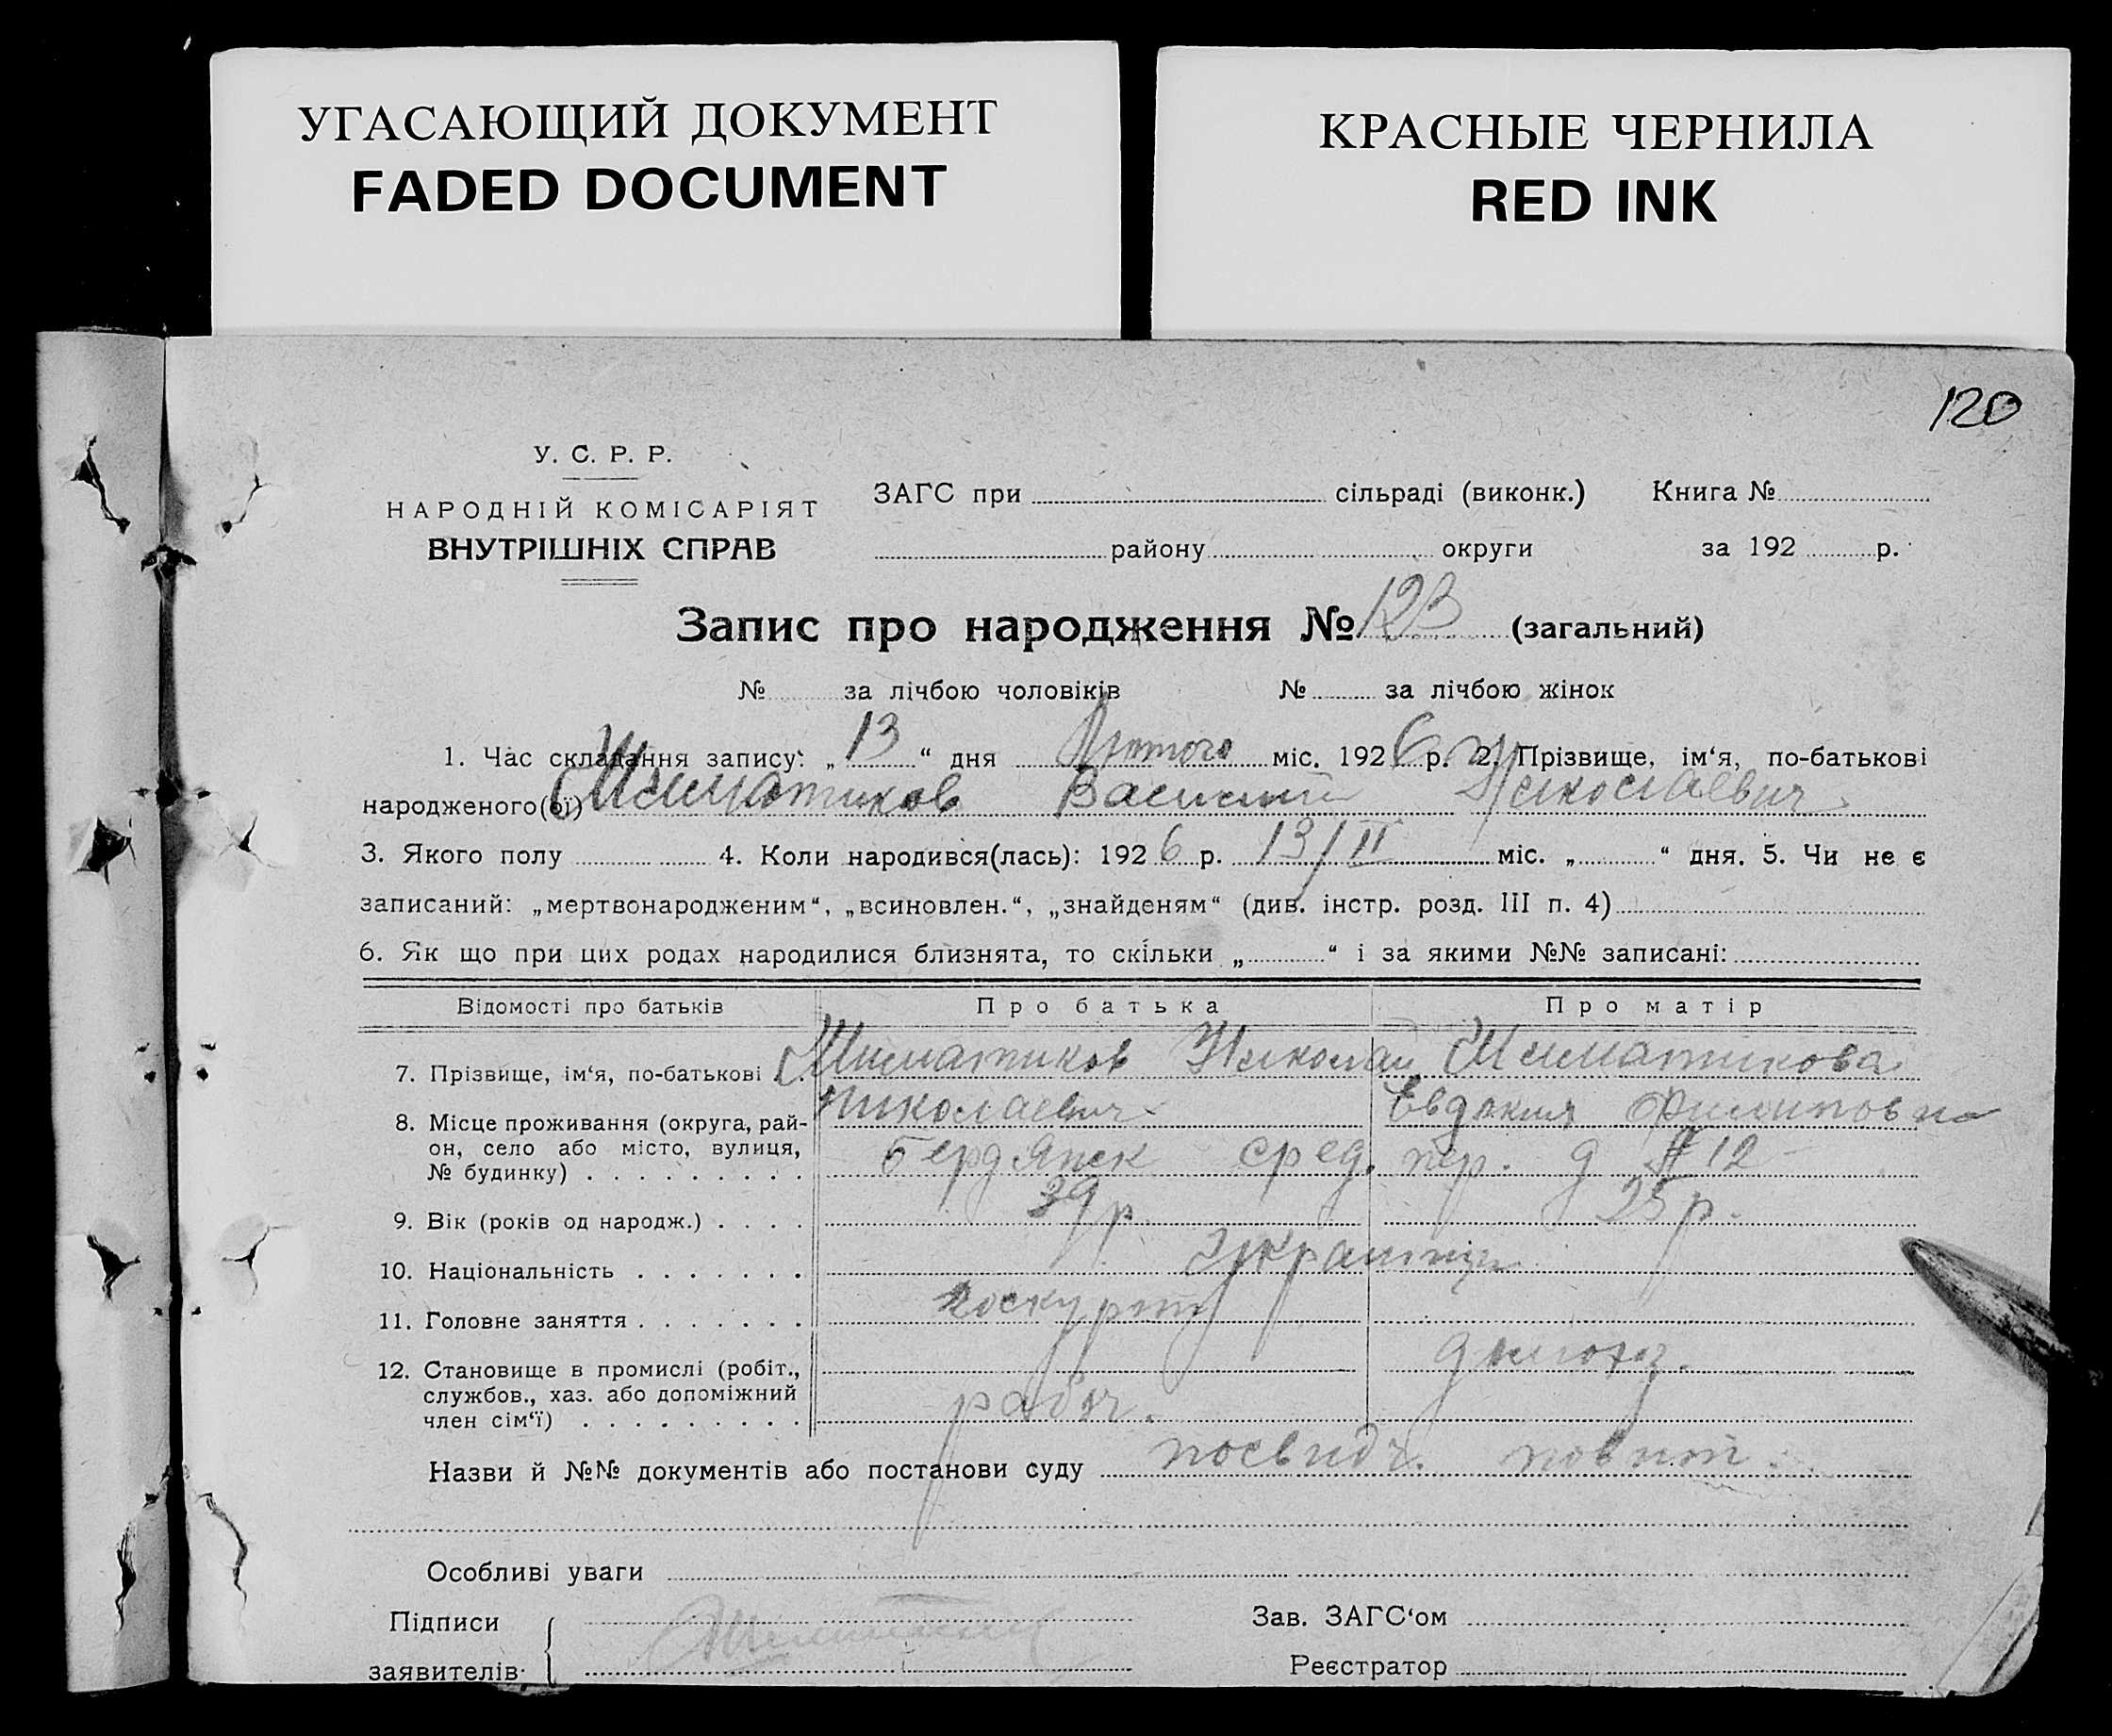 УГАСАЮЩИЙ ДОКУМЕНТ
FADED DOCUMENT
КРАСНЫЕ ЧЕРНИЛА
RED INK
120
У. С. Р. Р.
НАРОДНІЙ КОМІСАРІЯТ
ВНУТРІШНІХ СПРАВ
ЗАГС при сільраді (виконк.) Книга №
району округи за 192 р.
Запис про народження № 123 (загальний)
№ за лічбою чоловіків № за лічбою жінок
1. Час складання запису: „ 13 “ дня Лютого міс. 1926 р. 2. Прізвище, ім‘я, по-батькові
народженого(ої) Василий Николаевич
3. Якого полу 4. Коли народився(лась): 1926 р. 13/II міс. „ “ дня. 5. Чи не є
записаний: „мертвонародженим“, „всиновлен.“, „знайденям“ (див. інстр. розд. III п. 4)
6. Як що при цих родах народилися близнята, то скільки „ “ і за якими №№ записані:
Відомості про батьків Про батька Про матір
7. Прізвище, ім‘я, по-батькові Шиматиков Николай Шиматикова
Николаевич Евдокия Филиповна
8. Місце проживання (округа, рай-
он, село або місто, вулиця,
№ будинку) Бердянск сред. пер. д № 12
9. Вік (років од народж.) 39 р 25 р.
10. Національність українци
11. Головне заняття
12. Становище в промислі (робіт.,
службов., хаз. або допоміжний
член сім‘ї) рабоч.
Назви й №№ документів або постанови суду посвидч. повит.
Особливі уваги
Підписи
заявителів
Зав. ЗАГС‘ом
Реєстратор